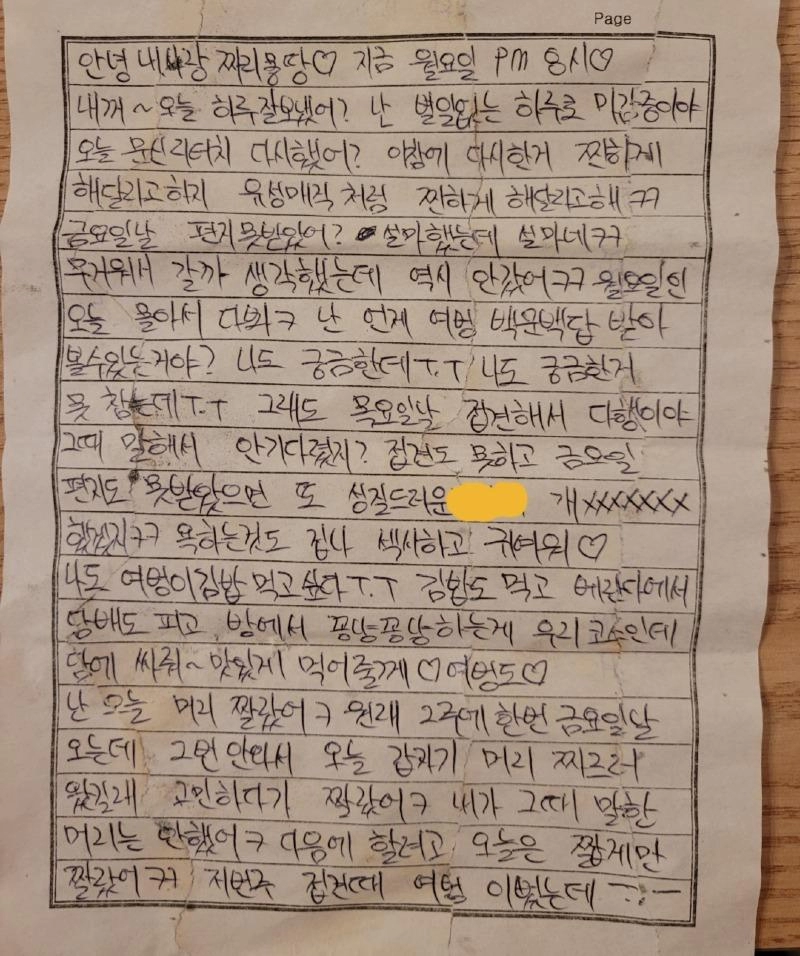 Page
안녕 내사랑 짜리몽땅♡ 지금 월요일 PM 8시♡
내꺼~ 오늘 하루 잘보냈어? 난 별일없는 하루로 마감중이야
오늘 문신 리터치 다시했어? 이참에 다시한거 찐하게
해달라고하지 유성매직처럼 찐하게 해달라고해 ㅋㅋ
금요일날 편지못받았어? 설마했는데 설마네ㅋㅋ
무거워서 갈까 생각했는데 역시 안갔어ㅋㅋ 월요일인
오늘 몰아서 다봐ㅋ 난 언제 여벙 백문백답 받아
볼수있는거야? 나도 궁금한데T.T 나도 궁금한거
못 참는데T.T 그래도 목요일날 접견해서 다행이야
그때 말해서 안기다렸지? 접견도 못하고 금요일
편지도 못받았으면 또 성질드러운 개xxxxxxx
했겠지ㅋㅋ 욕하는것도 겁나 섹시하고 귀여워♡
나도 여벙이김밥 먹고싶다T.T 김밥도 먹고 베란다에서
담배도 피고, 방에서 퐁냥퐁냥하는게 우리 코스인데
담에 싸줘~ 맛있게 먹어줄게♡ 여벙도♡
난 오늘 머리 짤랐어ㅋ 원래 2주에 한번 금요일날
오는데 그먼 안와서 오늘 갑자기 머리 짜르러
왔길래 고민하다가 짤랐어ㅋ 씨가 그때 말한
머리는 안했어ㅋ 다음에 할려고 오늘은 짧게만
짤랐어ㅋㅋ 저번주 접견때 여벙 이뻤는데 ㅡ.ㅡ